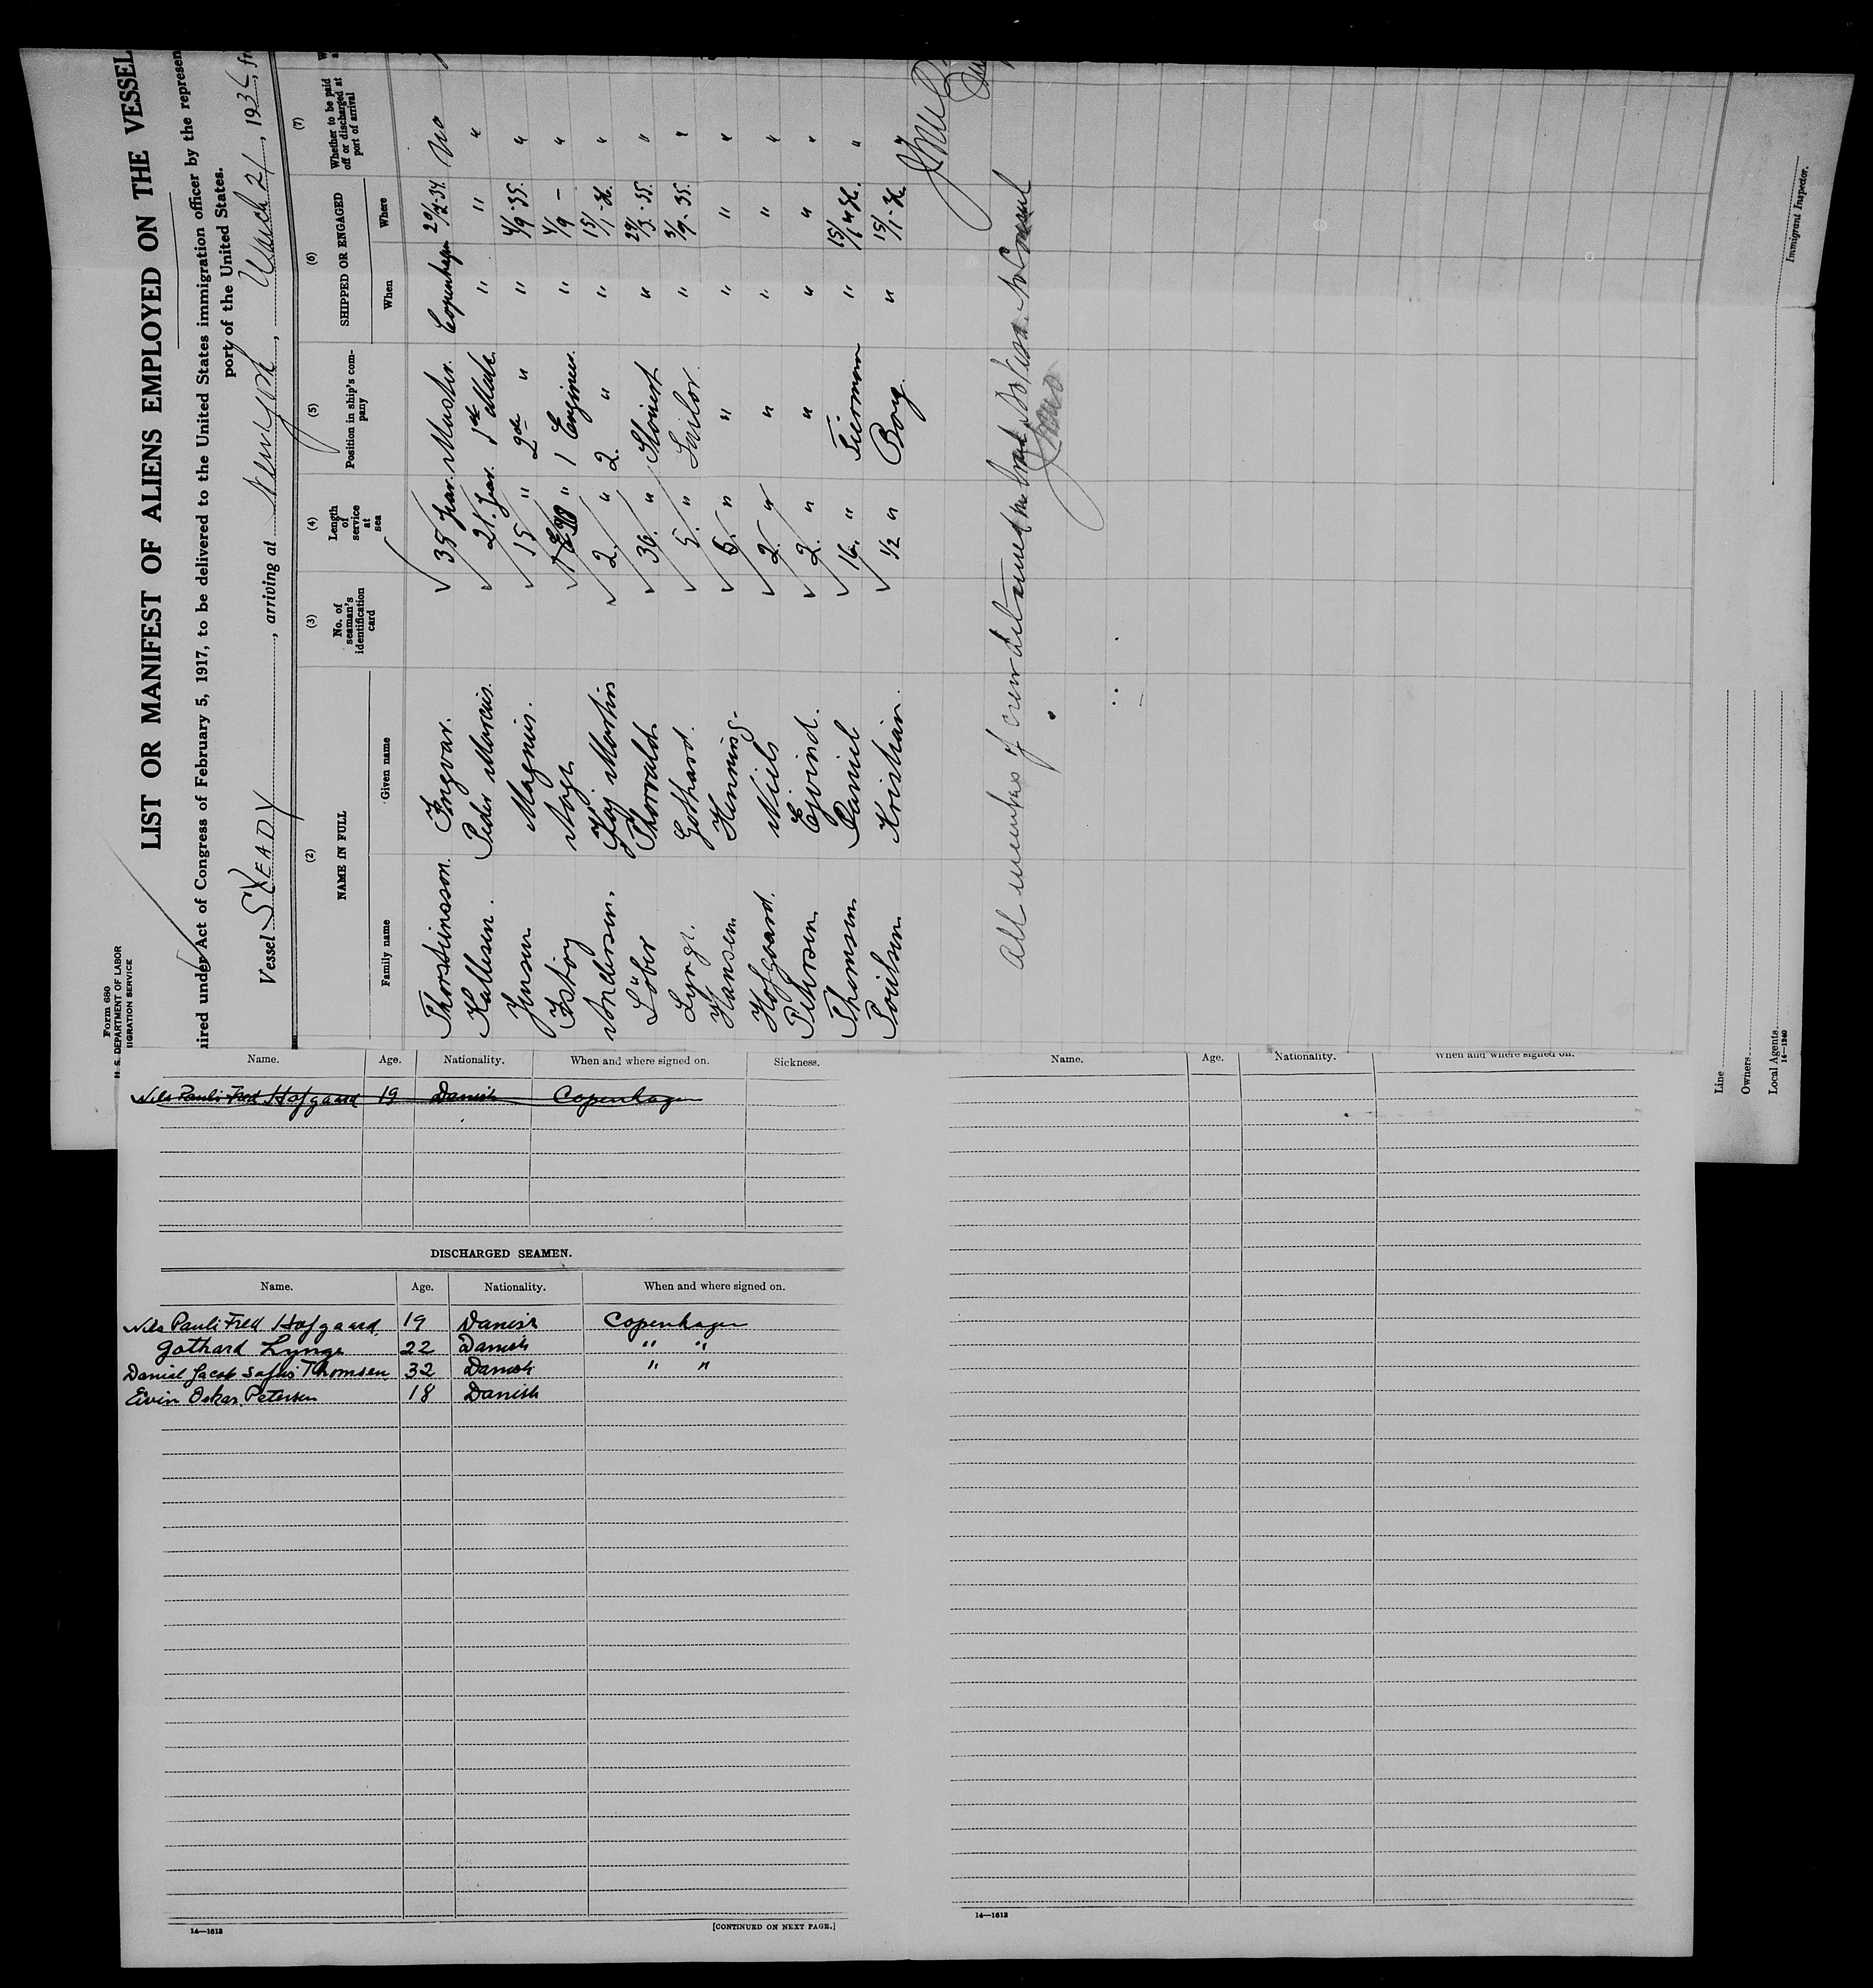 Form 680
U. S. DEPARTMENT OF LABOR
IIGRATION SERVICE
LIST OR MANIFEST OF ALIENS EMPLOYED ON THE VESSEL
uired under Act of Congress of February 5, 1917, to be delivered to the United States immigration officer by the represen
port of the United States.
Vessel STEADY, arriving at New York, March 21, 1936, fr
(2) (3) (4) (5) (6) (7)
NAME IN FULL No. of seaman's identification card Length of service at sea Position in ship's company SHIPPED OR ENGAGED Whether to be paid off or discharged at port of arrival
Family name Given name When Where
Thorsteinsson. Ingvar. 35 year. Master. Copenhagen 20/2-34. No
Kallesen. Peder Marcus. 21. year. 1st Mate. " " "
Jensen Magnus. 15 " 2nd " " 4/9-35. "
Aage " 1 Engineer. " 4/9 – "
Andersen. Kaj Martin 2 " 2. " " 15/1-36. "
Löber Thorvald 36. " " 29/3-35. "
Lynge. Gothard. 5. " Sailor. " 3/9-35. "
Hansen. Henning. 5. " " " " "
Hofgaard. Niels 2. " " " " "
Petersen. Ejvind. 2. " " " " "
Thomsen. Daniel 16. " Fiermann " 15/1-36. "
Poulsen Kristian. 1/2 " Boy. " 15/1-36 "
All members of crew detained on board
Immigrant Inspector.
Line
Owners
Local Agents
14—1240
Name. Age. Nationality. When and where signed on. Sickness.
Nils Pauli Fred Hofgaard 19 Danish Copenhagen
DISCHARGED SEAMEN.
Name. Age. Nationality. When and where signed on.
Nils Pauli Fred Hofgaard 19 Danish Copenhagen
Gothard Lynge 22 Danish " "
Daniel Jacob Sofus Thomsen 32 Danish " "
Eivin Oskar Petersen 18 Danish
14—1613 [CONTINUED ON NEXT PAGE.]
Name. Age. Nationality. When and where signed on.
14—1613